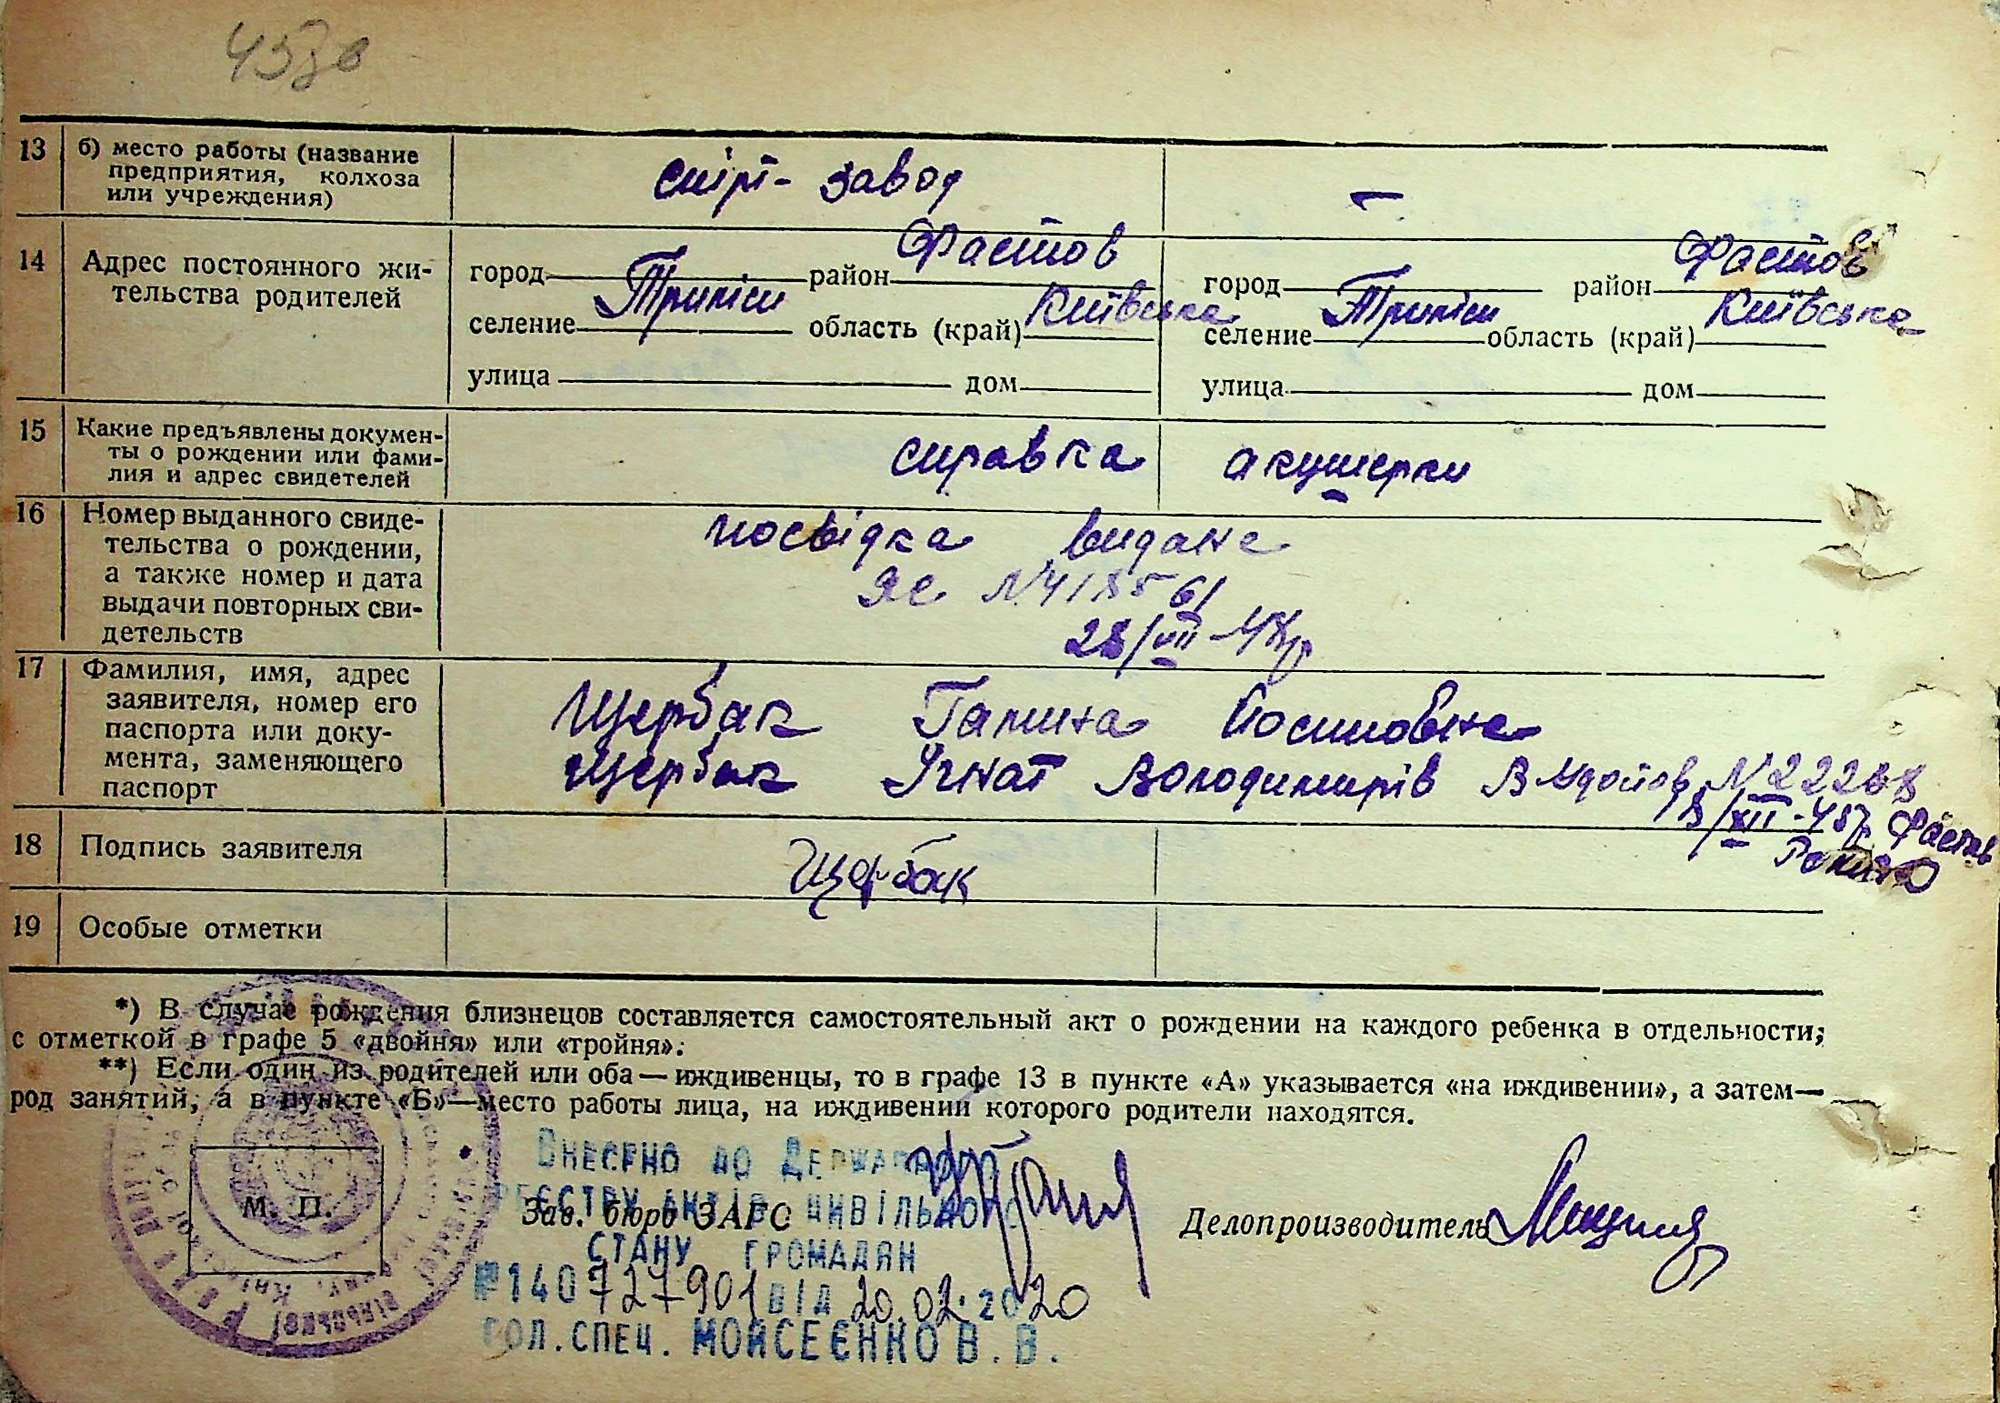 13 б) место работы (название
предприятия, колхоза
или учреждения)
спірт-завод
–
14 Адрес постоянного жи-
тельства родителей
город район Фастов
селение Трипіси область (край) Київська
улица дом
город район Фастов
селение Трипіси область (край) Київська
улица дом
15 Какие предъявлены докумен-
ты о рождении или фами-
лия и адрес свидетелей
справка акушерки
16 Номер выданного свиде-
тельства о рождении,
а также номер и дата
выдачи повторных сви-
детельств
посвідка видана
28/VII-48р
17 Фамилия, имя, адрес
заявителя, номер его
паспорта или доку-
мента, заменяющего
паспорт
Щербак Галина Йосиповна
Щербак Ігнат Володимирів
Фастов
18 Подпись заявителя
Щербак
19 Особые отметки
*) В случае рождения близнецов составляется самостоятельный акт о рождении на каждого ребенка в отдельности,
с отметкой в графе 5 «двойня» или «тройня».
**) Если один из родителей или оба—иждивенцы, то в графе 13 в пункте «А» указывается «на иждивении», а затем—
род занятий, а в пункте «Б»—место работы лица, на иждивении которого родители находятся.
М. П.
Внесено до Державного
реєстру актів цивільного
стану громадян
№140727901 від 20.02.2020
гол.спец. Мойсеєнко В.В.
Зав. бюро ЗАГС
Делопроизводитель